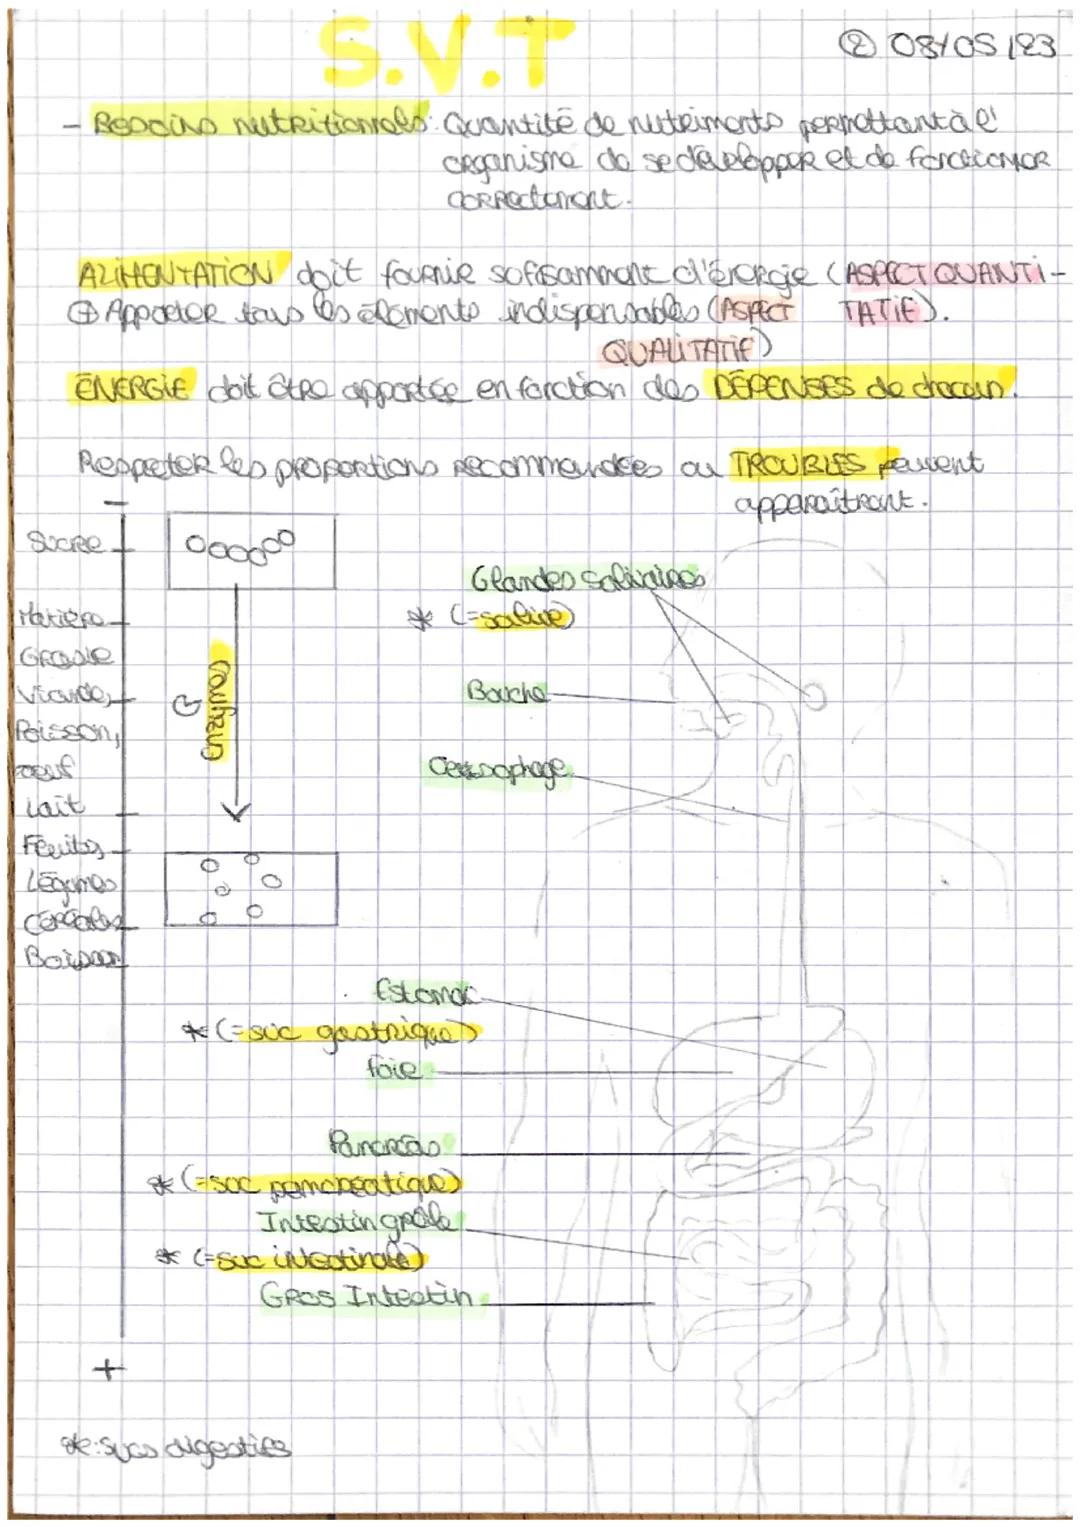 S.V.T
② 08/05/23
- Besoins nutritionnels: Quantité de nutriments permettant à l'
organisme de se développer et de fonctionner
correctement.
ALIMENTATION doit fournir suffisamment d'énergie (ASPECT QUANTI-
⊕ Apporter tous les éléments indispensables (ASPECT TATIF).
QUALITATIF)
ÉNERGIE doit être apportée en fonction des DÉPENSES de chacun.
Respecter les proportions recommandées ou TROUBLES peuvent
apparaîtront.
-
Sucre
Matière
Grasse
Viande,
Poisson,
oeuf
Lait
Fruits
Légumes
Céréales
Boisson
+
Glandes Salivaires
* (=salive)
Bouche
Oesophage
Estomac
* (=suc gastrique)
foie
Pancréas
* (=suc pancréatique)
Intestin grêle
* (=suc intestinale)
Gros Intestin
*: sucs digestifs